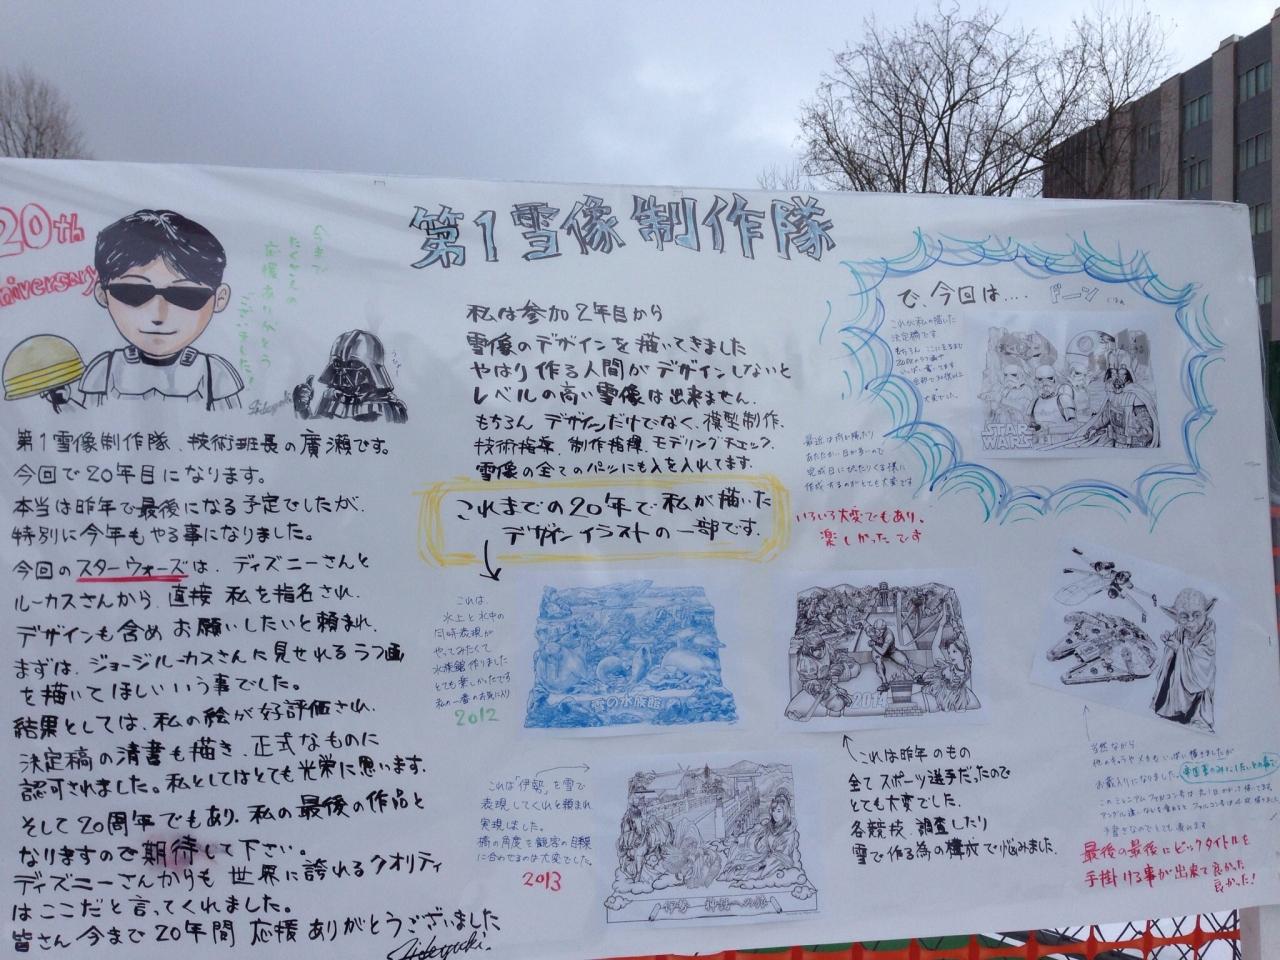 第1雪像制作隊
20th
niversary
今まで
たくさんの
応援ありがとう
ございました!
Hideyuki
第1雪像制作隊、技術班長の廣瀬です。
今回で20年目になります。
本当は昨年で最後になる予定でしたが、
特別に今年もやる事になりました。
今回のスターウォーズは、ディズニーさんと
ルーカスさんから、直接私を指名され、
デザインも含めお願いしたいと頼まれ、
まずは、ジョージルーカスさんに見せれるラフ画
を描いてほしいいう事でした。
結果としては、私の絵が好評価され、
決定稿の清書も描き、正式なものに
認可されました。私としてはとても光栄に思います。
そして20周年でもあり、私の最後の作品と
なりますので期待して下さい。
ディズニーさんからも世界に誇れるクオリティ
はここだと言ってくれました。
皆さん今まで20年間応援ありがとうございました
Hideyuki.
私は参加2年目から
雪像のデザインを描いてきました
やはり作る人間がデザインしないと
レベルの高い雪像は出来ません。
もちろんデザインだけでなく、模型制作、
技術指導、制作指揮、モデリングチェック、
雪像の全てのパーツにも入を入れてます.
これまでの20年で私が描いた
デザインイラストの一部です.
これは、
氷上と水中の
同時表現が
やってみたくて
水族館作りました
とても楽しかったです
私の一番のお気に入り
2012
雪の水族館
これは「伊勢」を雪で
表現してくれと頼まれ
実現しました。
橋の角度を観客の目線
に合わせるのは大変でした。
2013
伊勢 神話への旅
2014
これは昨年のもの
全てスポーツ選手だったので
とても大変でした.
各競技、調査したり
雪で作る為の構成で悩みました.
で、今回は....
ドーン
これが私の描いた
決定稿です
もちろんここに至るまで
大変でした。
STAR WARS
最近は雨が降ったり
あたたかい日が多いので
完成日にぴったりくる様に
作成するのがとても大変です
いろいろ大変でもあり、
楽しかったです
当然ながら
他のキャラやメカもいっぱい描きましたが
お蔵入りになりました。
最後の最後にビックタイトルを
手掛ける事が出来て良かった
良かった!